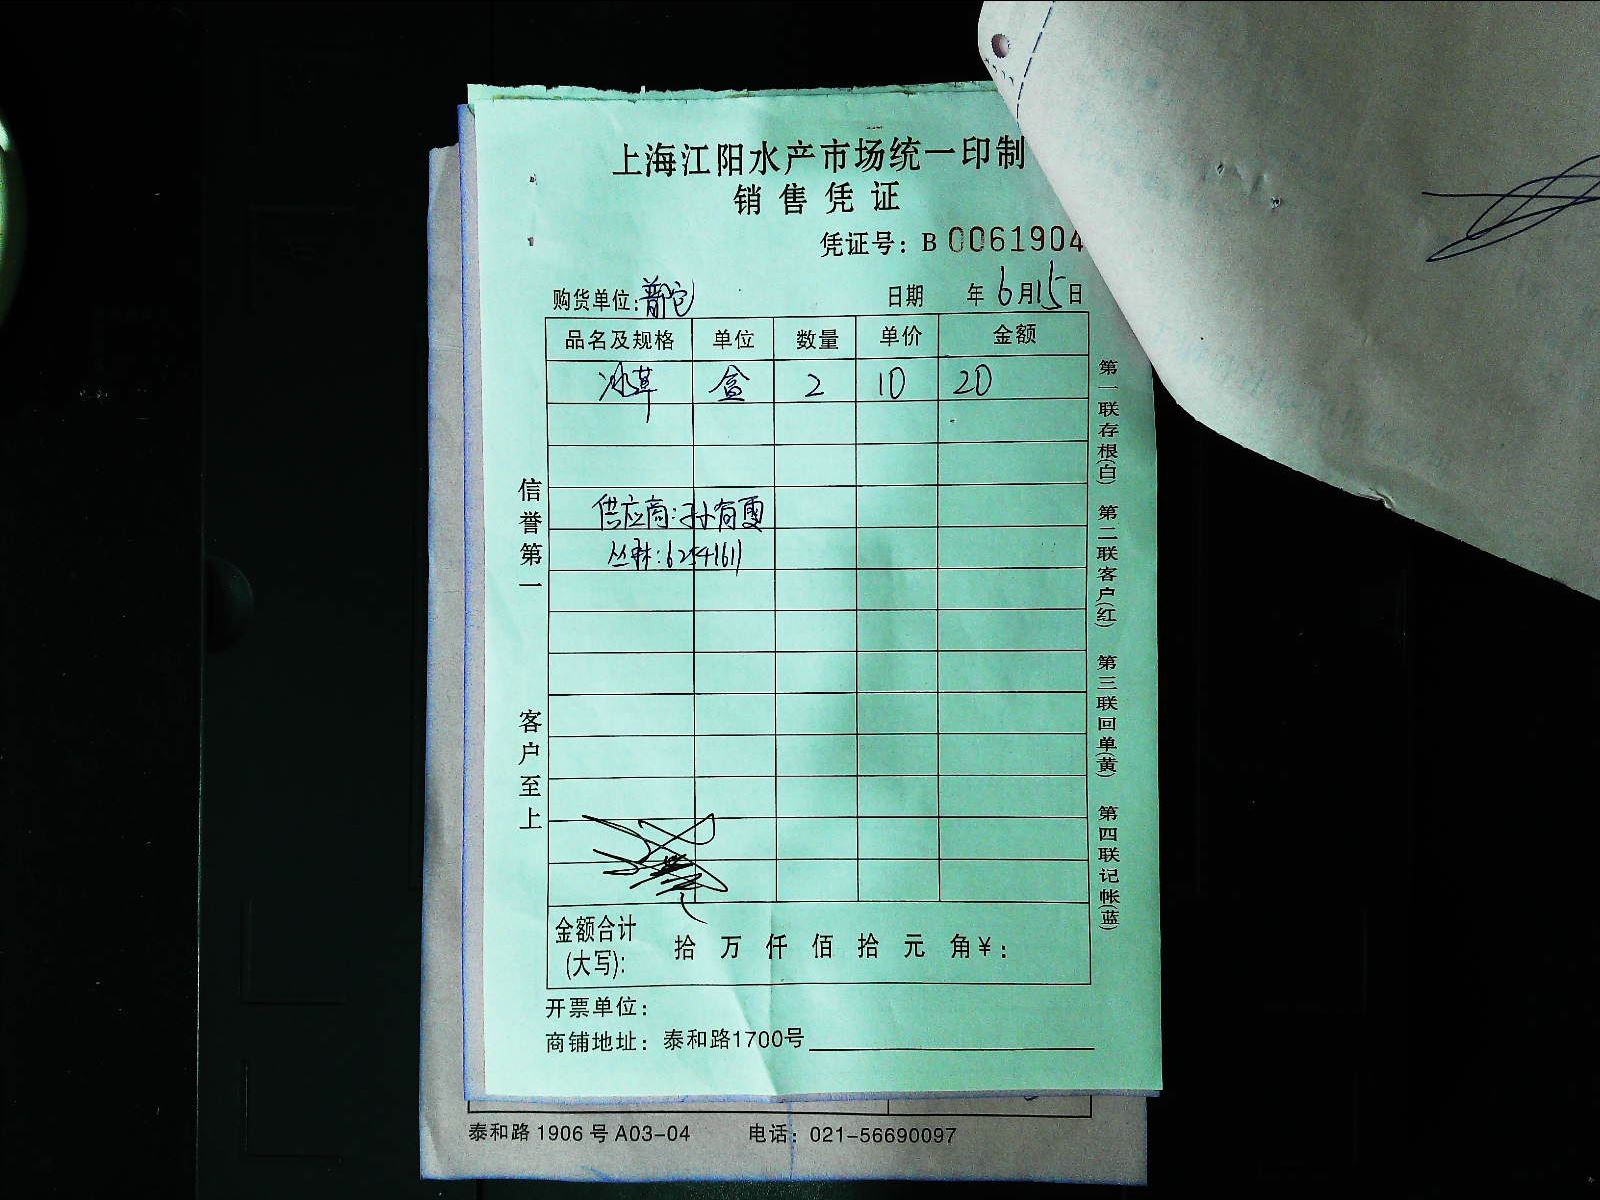 上海江阳水产市场统一印制
销售凭证
凭证号：B 0061904
购货单位：普陀 日期 年 6月15日
品名及规格 单位 数量 单价 金额
冰草 盒 2 10 20
供应商：孙有更
丛林：62541611
信誉第一
客户至上
第一联存根(白) 第二联客户(红) 第三联回单(黄) 第四联记帐(蓝)
金额合计(大写)： 拾 万 仟 佰 拾 元 角¥：
开票单位：
商铺地址：泰和路1700号
泰和路 1906 号 A03-04 电话：021-56690097